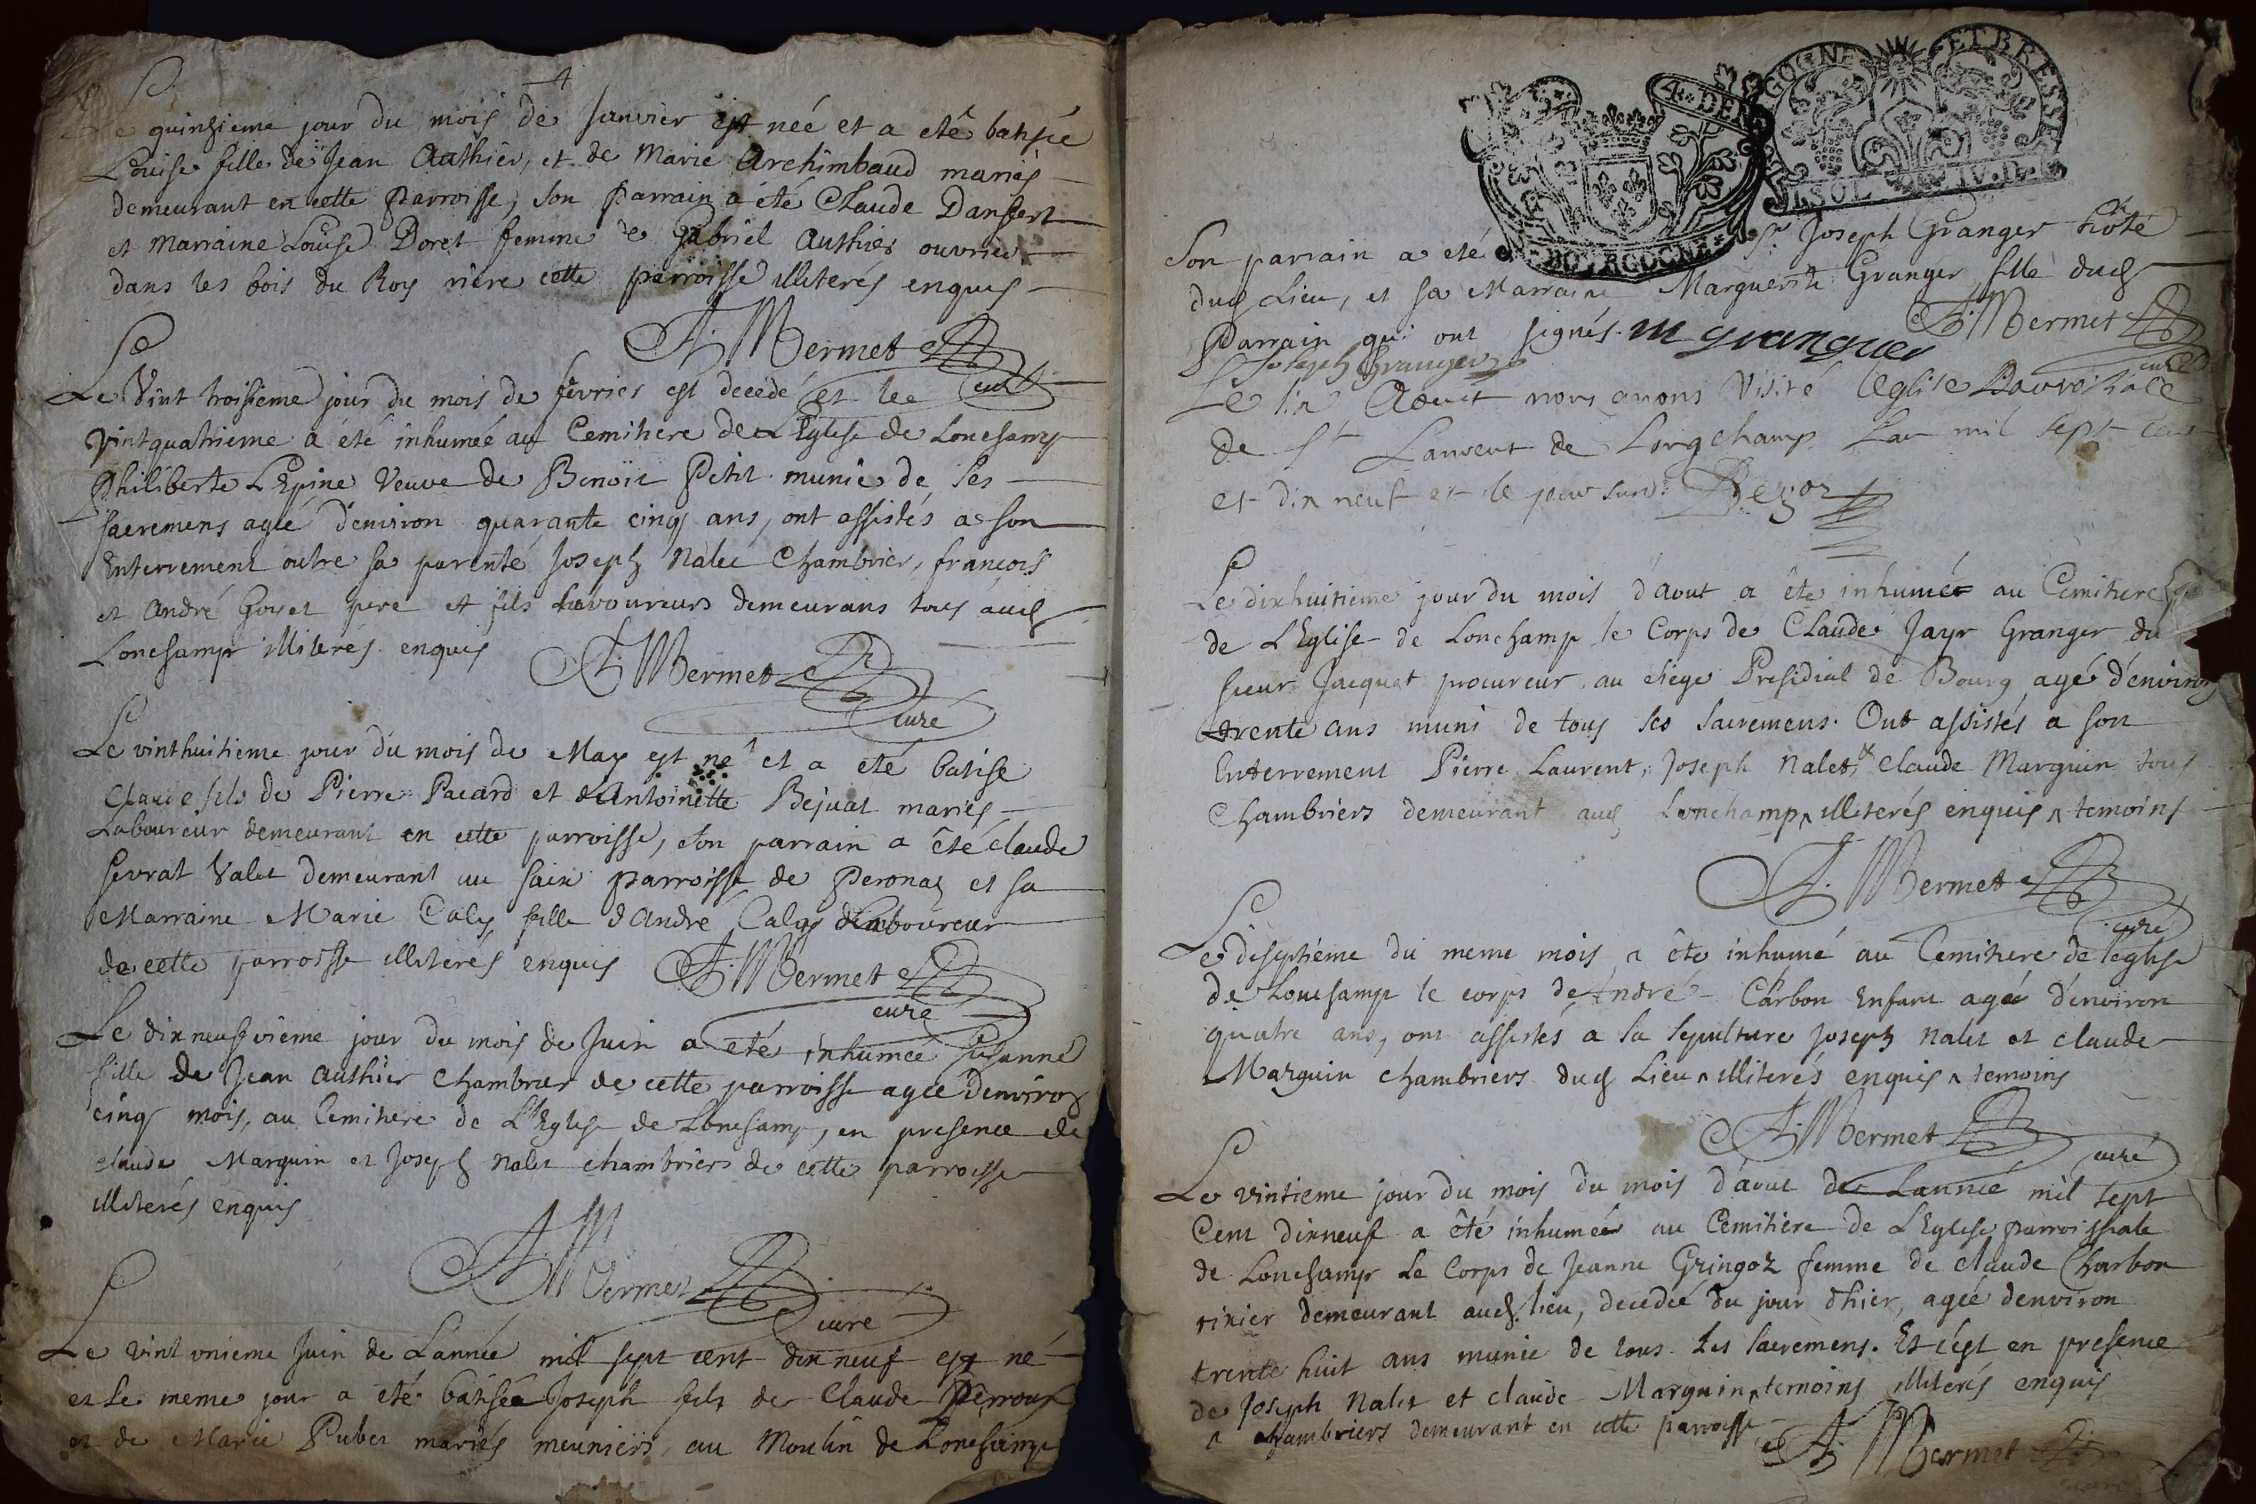 Le quinzieme jour du mois de Janvier est née et a eté batisée
Louise fille de Jean Authier, et de Marie Archimbaud mariés
demeurant en cette parroisse, son parrain a été Claude Danfert
et marraine Louise Doret femme de Gabriel Authier ouvrier
dans les bois du Roy riere cette parroisse illiterés enquis
A. Mermet
curé
Le Vint troisieme jour du mois de fevrier est decedé et le
vintquatrieme a été inhumée au Cemitiere de L'Eglise de Lonchamp
Philiberte L'Epine Veuve de Benoit Petit munie de ses
sacremens agée d'environ quarante cinq ans, ont assistés a son
Enterrement outre sa parenté Joseph Nalet Chambrier, françois
et André Goyet pere et fils Laboureurs demeurans tous aud
Lonchamp illiterés enquis
A. Mermet
curé
Le vinthuitieme jour du mois de May est né et a eté batisé
Claude fils de Pierre Pacard et d'Antoinette Bejuat mariés
Laboureur demeurant en cette parroisse, son parrain a été claude
sevrat Valet demeurant au saix parroisse de Peronaz et sa
Marraine Marie Caly fille d'André Caly Laboureur
de cette parroisse illiterés enquis
A. Mermet
curé
Le dixneufvieme jour du mois de Juin a eté inhumée Susanne
fille de Jean Authier Chambrier de cette parroisse agée d'environ
cinq mois, au Cemitiere de L'Eglise de Lonchamp, en presence de
claude Marguin et Joseph Nalet chambriers de cette parroisse
illiterés enquis
A. Mermet
curé
Le vint unieme Juin de L'année mil sept cent dix neuf est né
et le meme jour a eté batisée Joseph fils de Claude Perroux
et de Marie Pubet mariés meuniers, au Moulin de Lonchamp
4. DEN
BOURGOGNE
GOGNE ET BRESSE
I SOL IV. D.
Son parrain a eté Sr Joseph Granger hote
dud Lieu, et sa Marraine Marguerite Granger fille dud
Parrain qui ont signés. m granger
A. Mermet
curé
Joseph Granger
Le six Aoust nous avons Visité l'eglise Parroissiale
de St Laurent de Longchamp L'an mil sept cent
et dix neuf
Le dixhuitieme jour du mois d'aout a été inhumée au Cemitiere
de L'Eglise de Lonchamp le Corps de Claude Jayr Granger du
sieur Jacquet procureur au siege Presidial de Bourg agé d'environ
trente ans muni de tous ses sacremens. Ont assistés a son
Enterrement Pierre Laurent, Joseph Nalet, & Claude Marguin tous
Chambriers demeurant aud Lonchamp ^ illiterés enquis ^ temoins
A. Mermet
curé
Le diseptieme du meme mois a été inhumé au Cemitiere de l'eglise
de Lonchamp le corps de André Carbon Enfant agée d'environ
quatre ans, ont assistés a sa sepulture Joseph Nalet et claude
Marguin chambriers dud Lieu ^ illiterés enquis ^ temoins
A. Mermet
curé
Le vintieme jour du mois du mois d'aout de L'année mil sept
Cent dixneuf a été inhumée au Cemitiere de L'Eglise parroissiale
de Lonchamp Le Corps de Jeanne Gringoz femme de claude Charbon
tixier demeurant aud lieu, decedée du jour d'hier, agée d'environ
trente huit ans munie de tous les sacremens. Et c'est en presence
de Joseph Nalet et claude Marguin ^ temoins illiterés enquis
^ chambriers demeurant en cette parroisse
A. Mermet